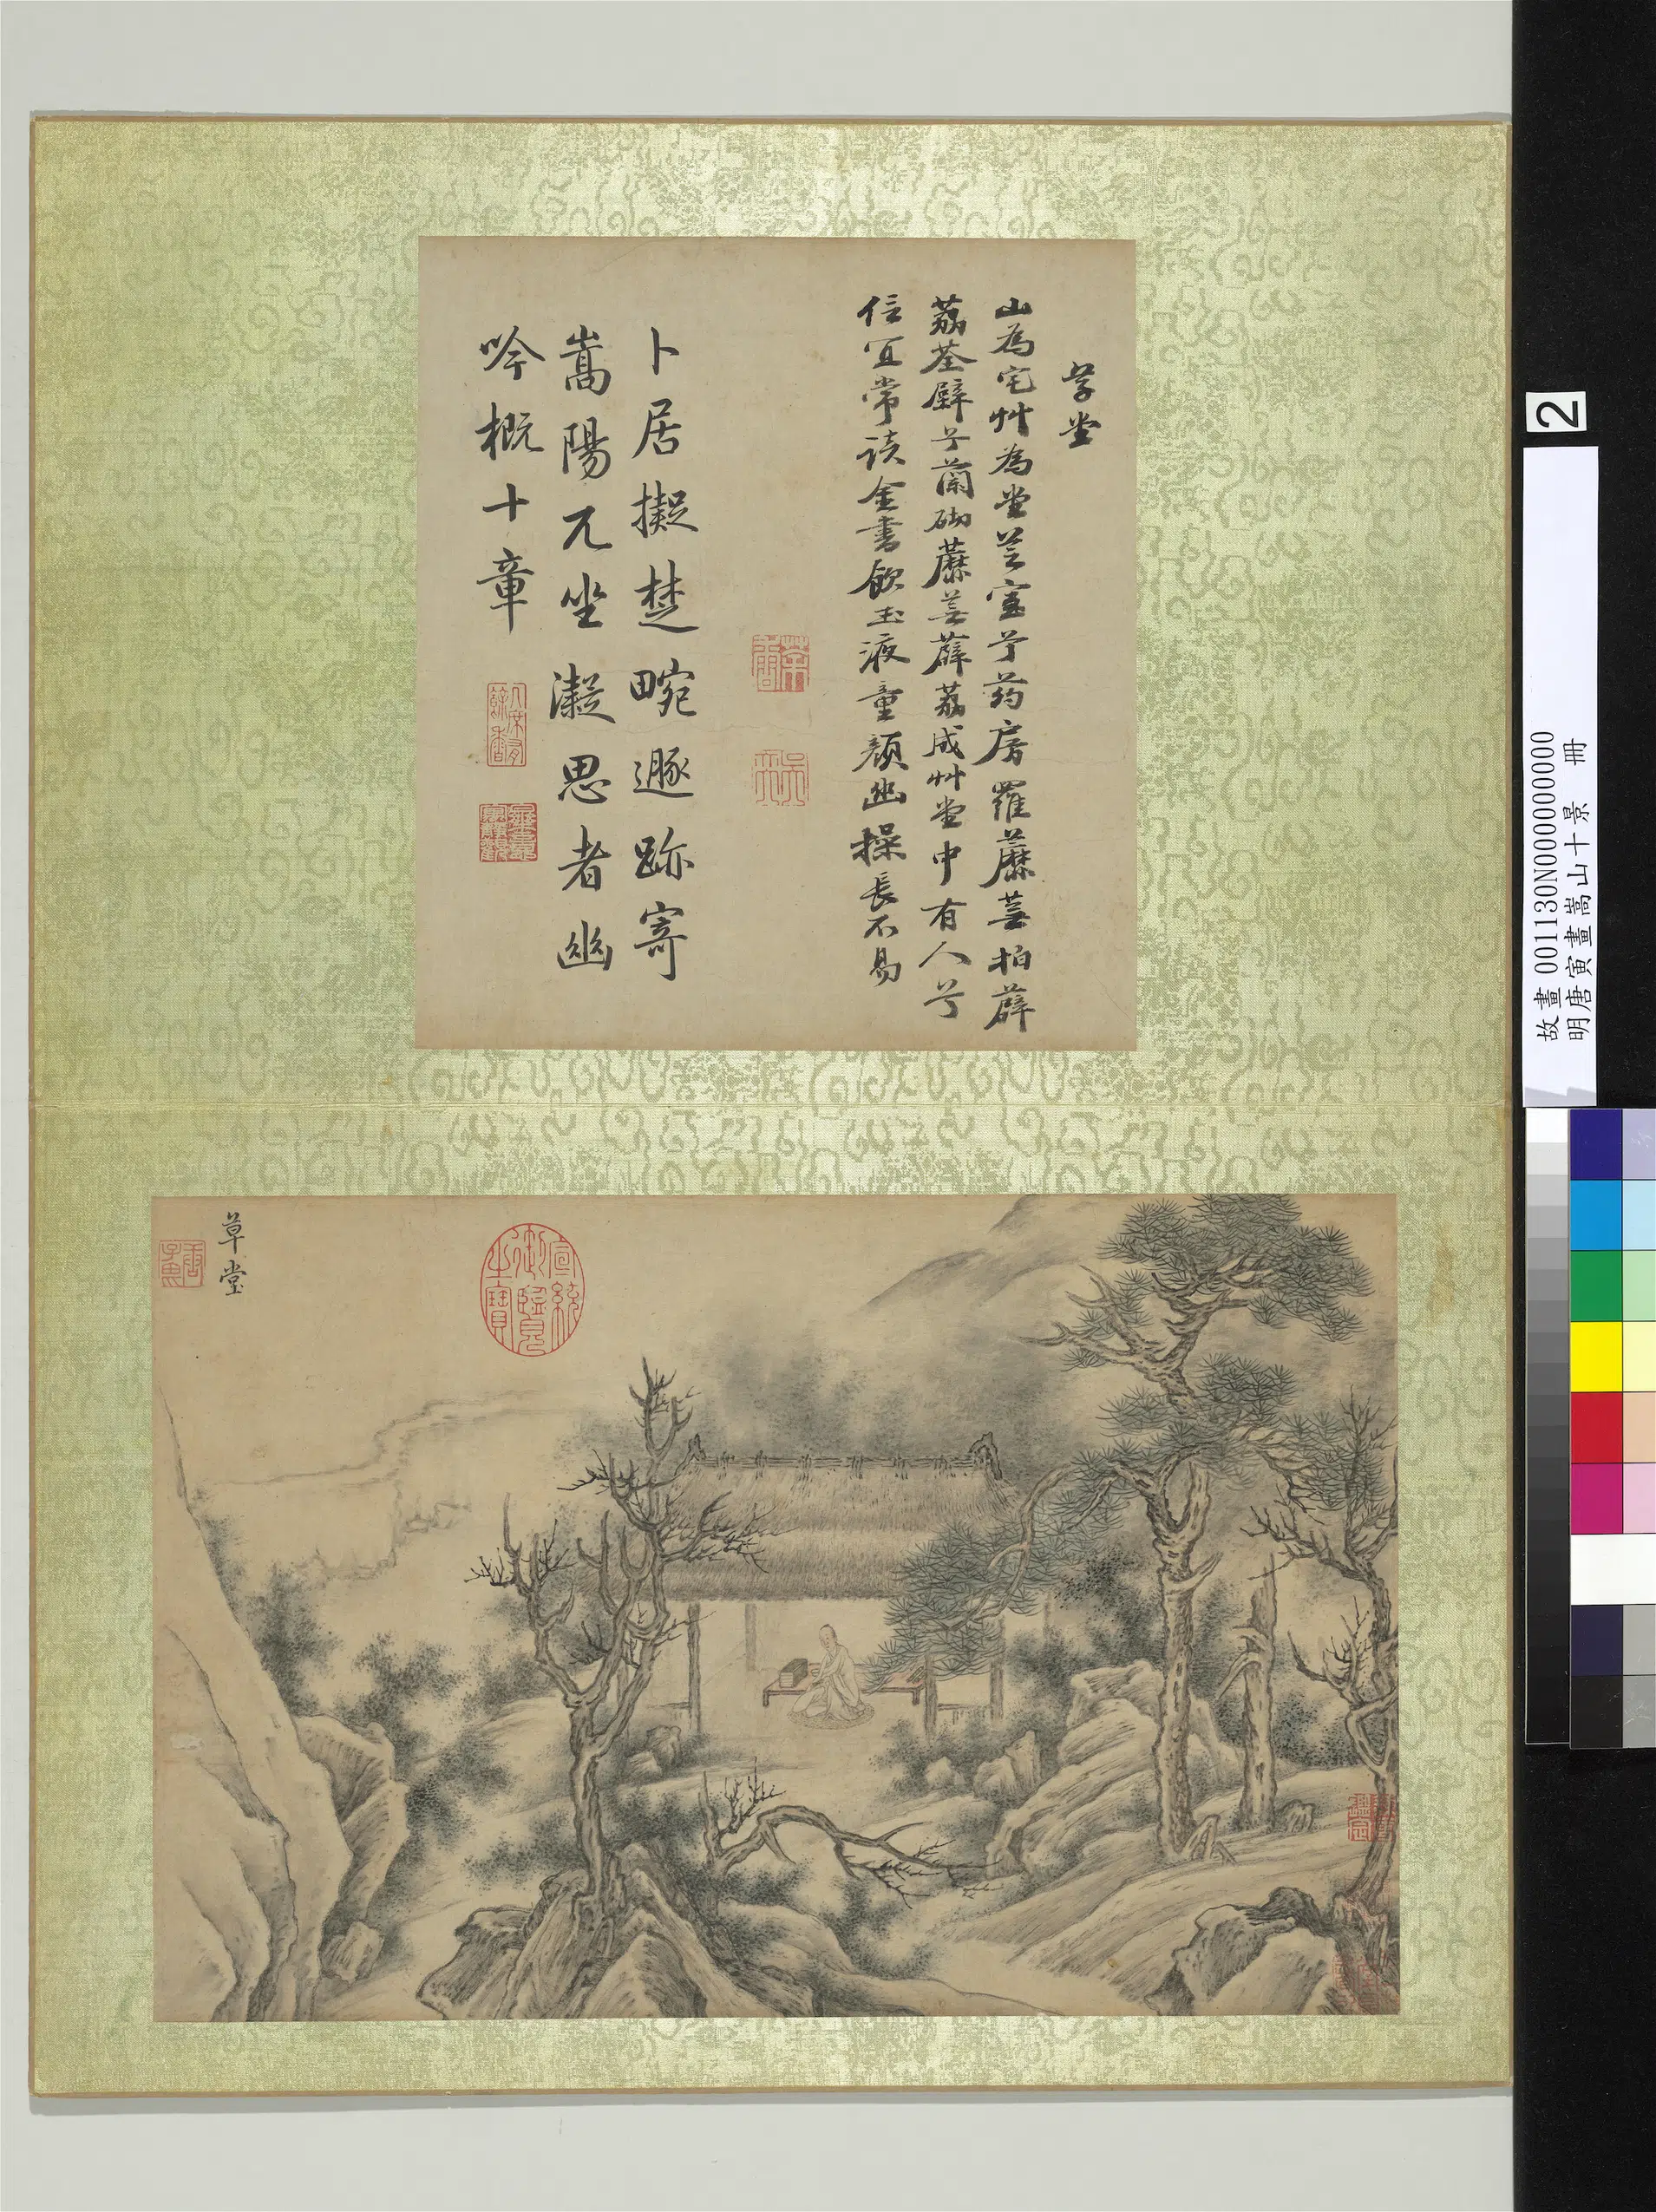 草堂
山為宅艸為堂芝室兮药房羅蘼蕪拍薜
荔荃壁兮蘭砌蘼蕪薜荔成艸堂中有人兮
信宜常读金書飲玉液童顏幽操長不易
卜居擬楚畹遯跡寄
嵩陽兀坐凝思者幽
吟概十章
几席有餘香
草堂
宣統御覽之寶
2
故畫 001130N000000000
明唐寅畫嵩山十景 冊